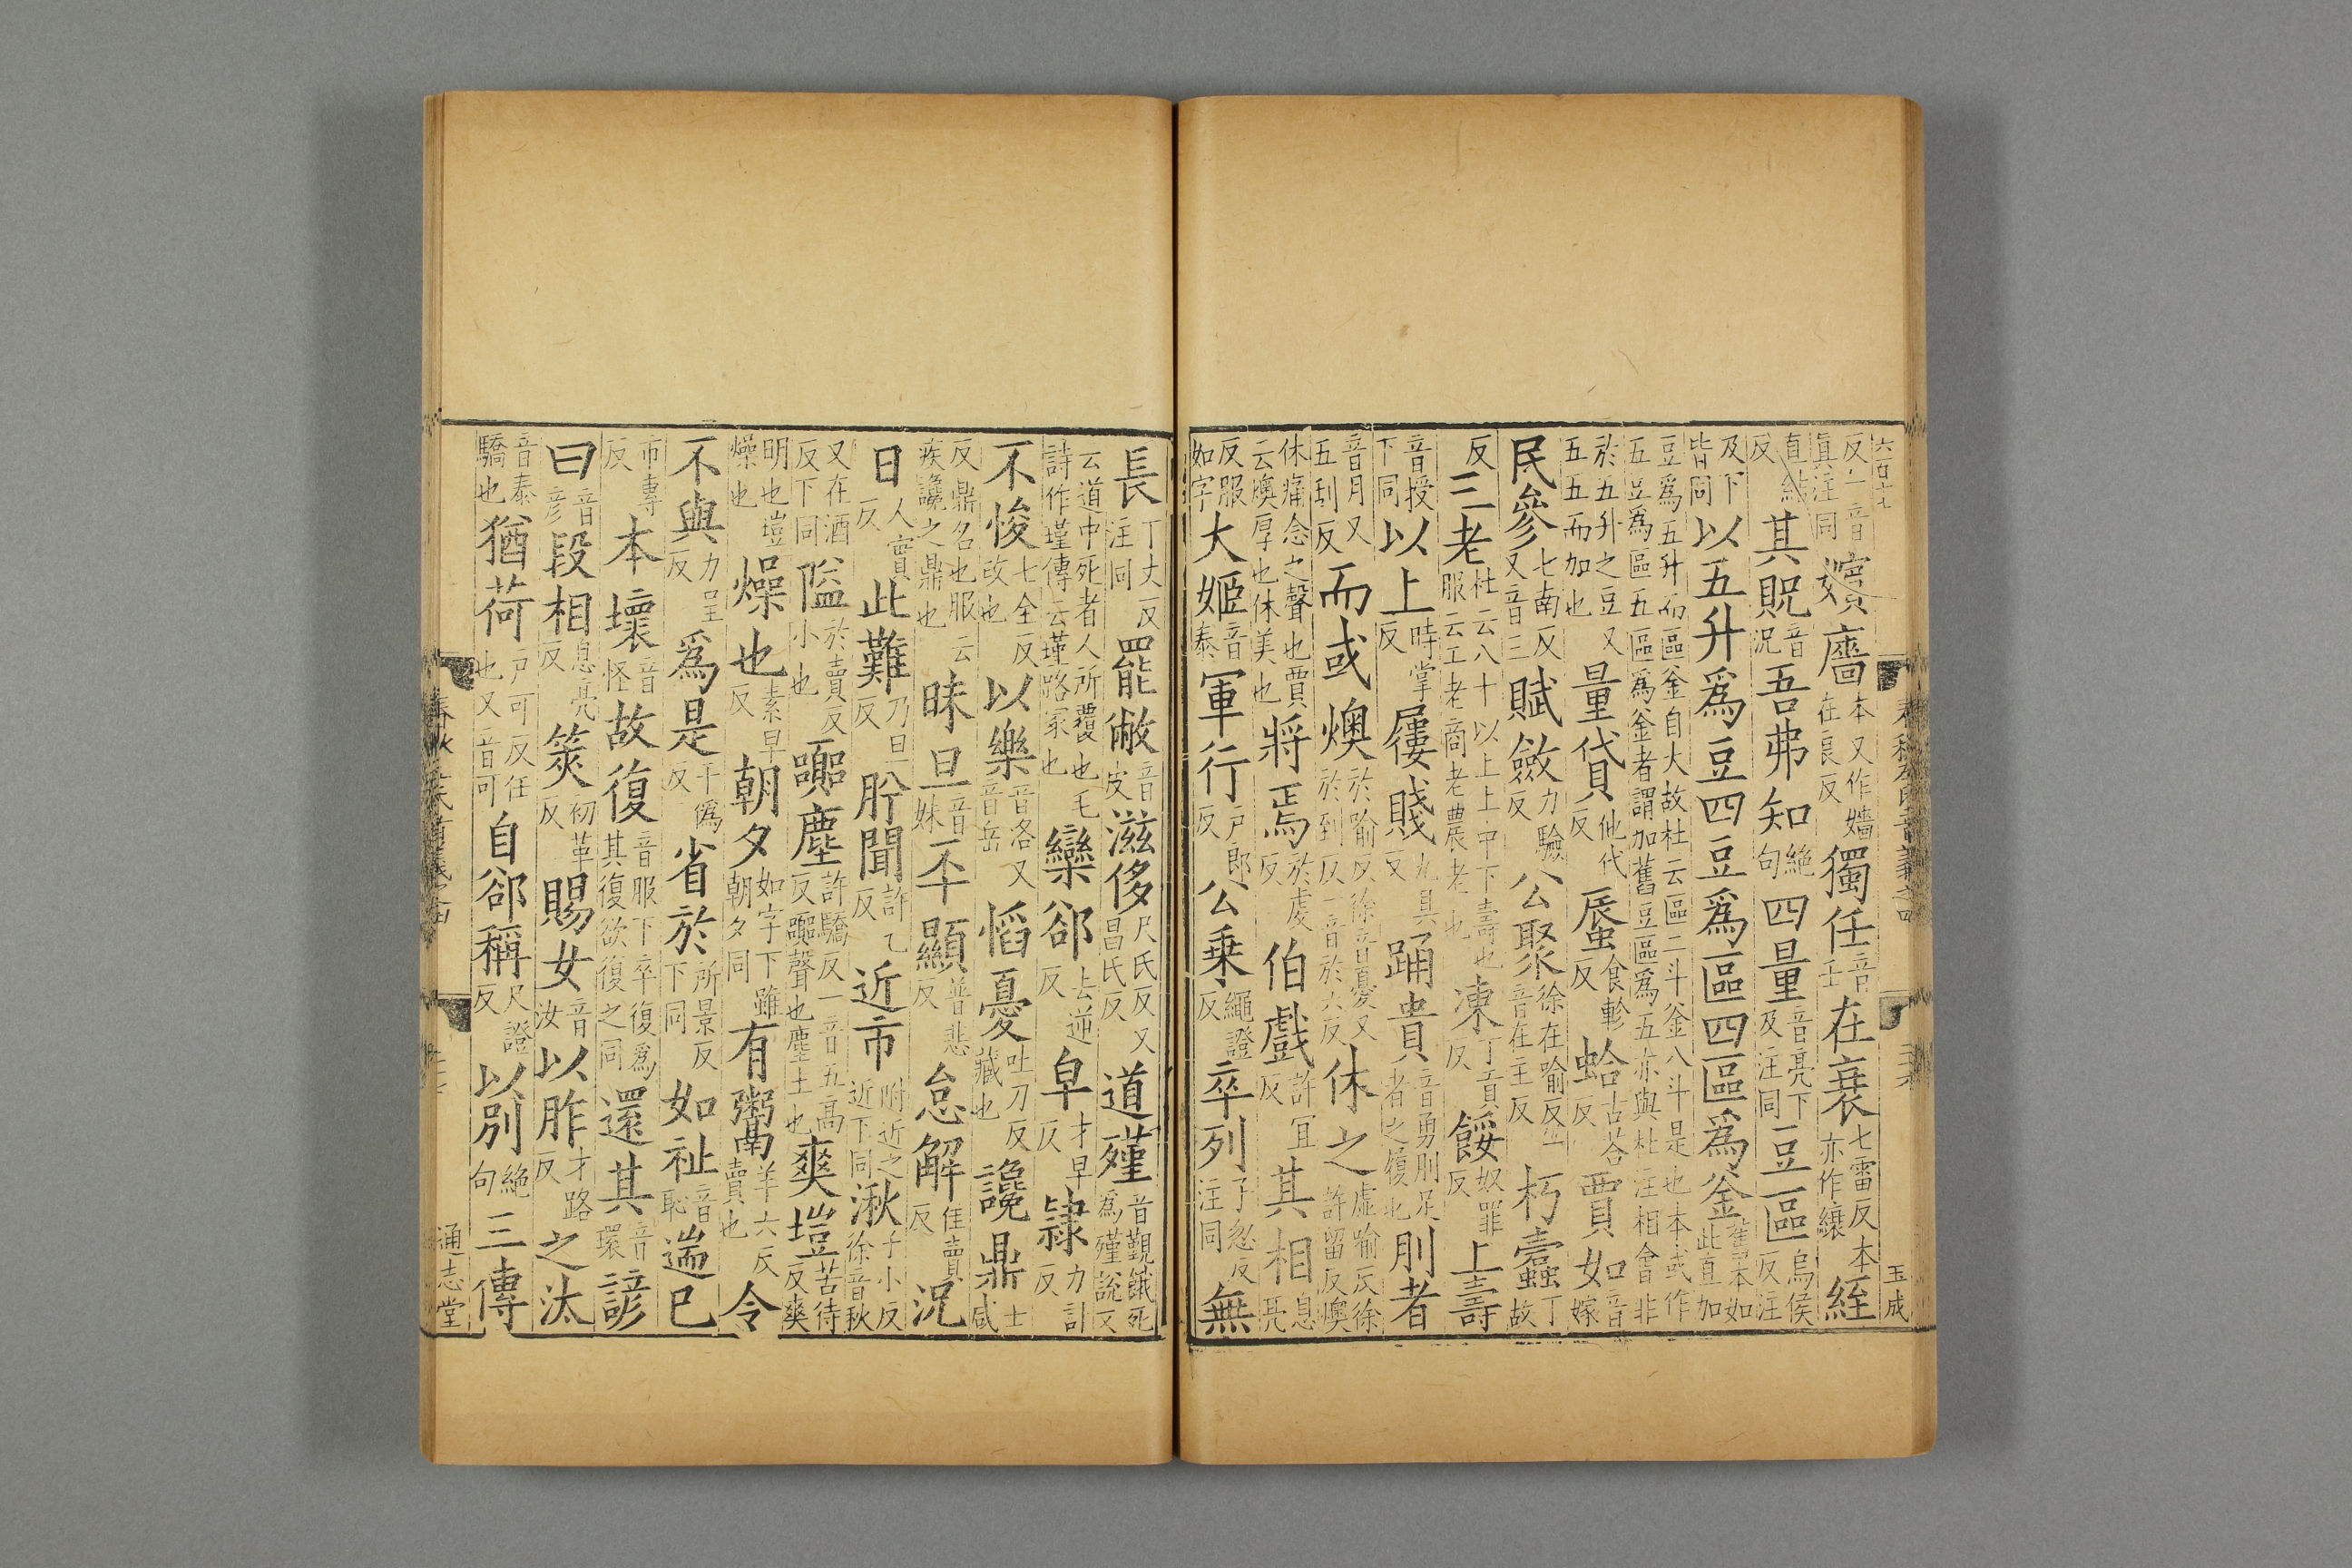 六百七
反一音眞注同嬪嬙本又作嬙在良反獨任音壬在衰七雷反本亦作縗絰
直結反其貺音況吾弗知絶句四量音亮下及注同豆區烏侯反注
及下皆同以五升爲豆四豆爲區四區爲釜舊本如此直加
豆爲五升而區釜自大故杜云區二斗釜八斗是也本或作五豆爲區五區爲釜者謂加舊豆區爲五亦與杜注相會非
於五升之豆又五五而加也量貸他代反蜃食軫反蛤古荅反賈如音嫁
民參七南反又音三賦斂力驗反公聚徐在喻反一音在主反朽蠹丁故
反三老杜云八十以上上中下壽也服云工老商老農老也凍丁貢反餒奴罪反上壽
音授下同以上時掌反屨賤九具反踊貴音勇刖足者之履也刖者
音月又五刮反而或燠於喻反徐音憂又於到反一音於六反休之虛喻反徐許留反燠
休痛念之聲也賈云燠厚也休美也將焉於虔反伯戲許宜反其相息亮
反服如字大姬音泰軍行戶郎反公乗繩證反卒列子忽反注同無
玉成
長丁丈反注同罷敝音皮滋侈尺氏反又昌氏反道殣音覲餓死爲殣說文
云道中死者人所覆也毛詩作墐傳云墐路冢也欒郤去逆反皁才早反隷力計反
不悛七全反改也以樂音洛又音岳慆憂吐刀反藏也讒鼎士咸
反鼎名也服云疾讒之鼎也昧旦音妹丕顯普悲反怠解佳賣反況
日人實反此難乃旦反肸聞許乙反近市附近之近下同湫子小反徐音秋
又在酒反下同隘於賣反小也嚻塵許驕反一音五高反嚻聲也塵土也爽塏苦待反爽
明也塏燥也燥也素早反朝夕如字下雖朝夕同有鬻羊六反賣也令
不與力呈反爲是于僞反省於所景反下同如祉音恥遄已
市專反本壞音怪故復音服下卒復爲其復欲復之同還其音環諺
曰音彦段相息亮反筴初革反賜女音汝以胙才路反之汰
音泰驕也猶荷戶可反任也又音可自郤稱尺證反以別絶句三傳
通志堂